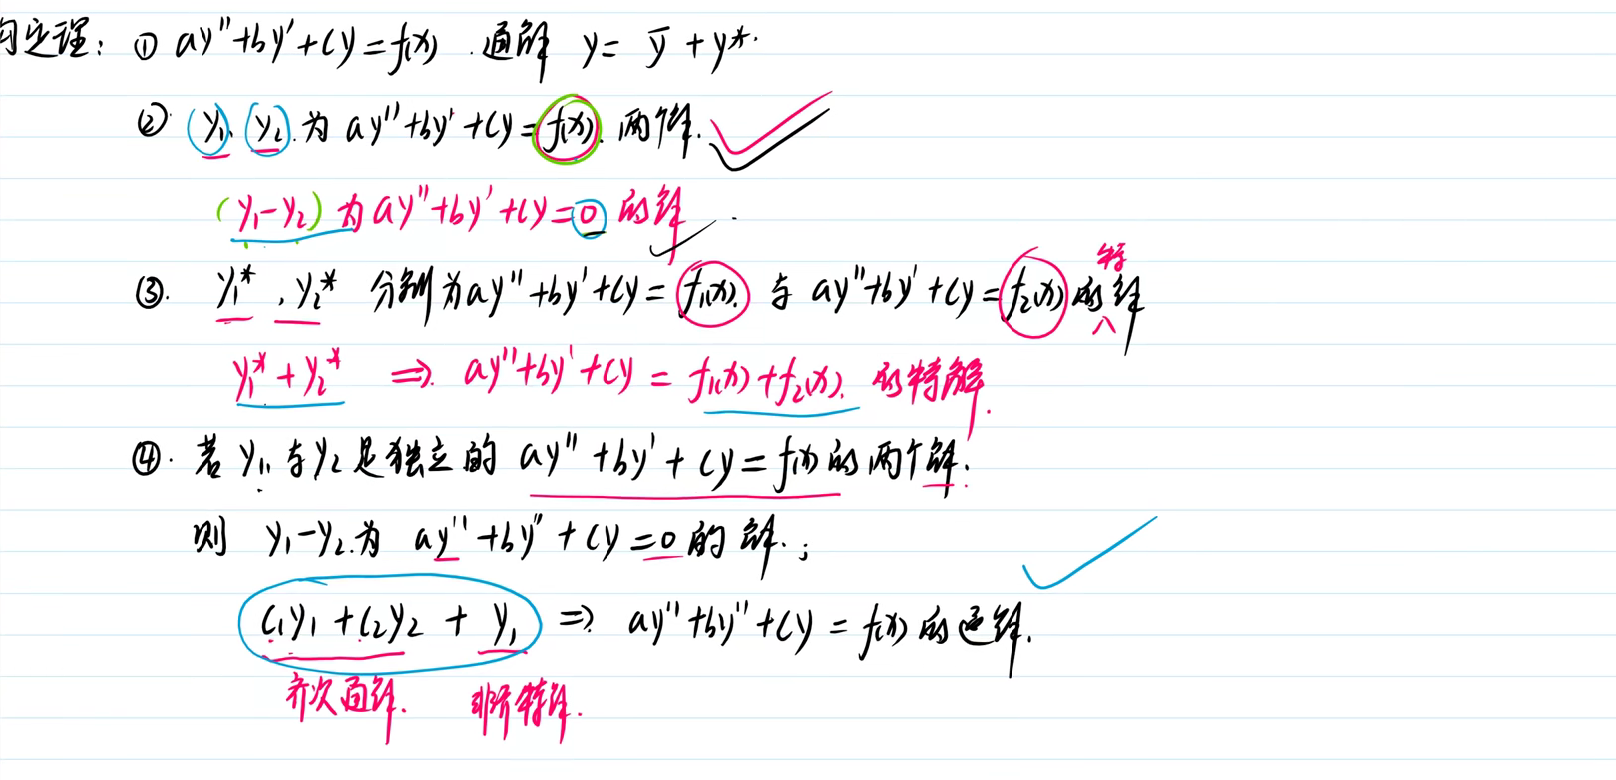 构定理: ① ay''+by'+cy=f(x). 通解 y= ȳ + y*.
②. y₁, y₂. 为 ay''+by'+cy=f(x). 两个解.
(y₁-y₂) 为 ay''+by'+cy=0 的解
③. y₁*, y₂* 分别为 ay''+by'+cy=f₁(x). 与 ay''+by'+cy=f₂(x) 的特解
y₁*+y₂* ⇒. ay''+by'+cy = f₁(x)+f₂(x). 的特解.
④. 若 y₁, 与 y₂ 是独立的 ay''+by'+cy=f(x) 的两个解.
则 y₁-y₂. 为 ay''+by''+cy=0 的解.;
C₁y₁+C₂y₂ + y₁ ⇒ ay''+by''+cy = f(x) 的通解.
齐次通解. 非齐特解.